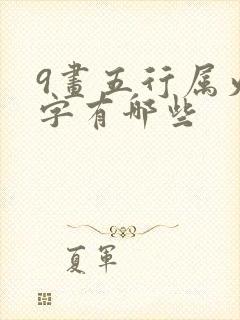 9畫五行属
字有哪些
夏軍